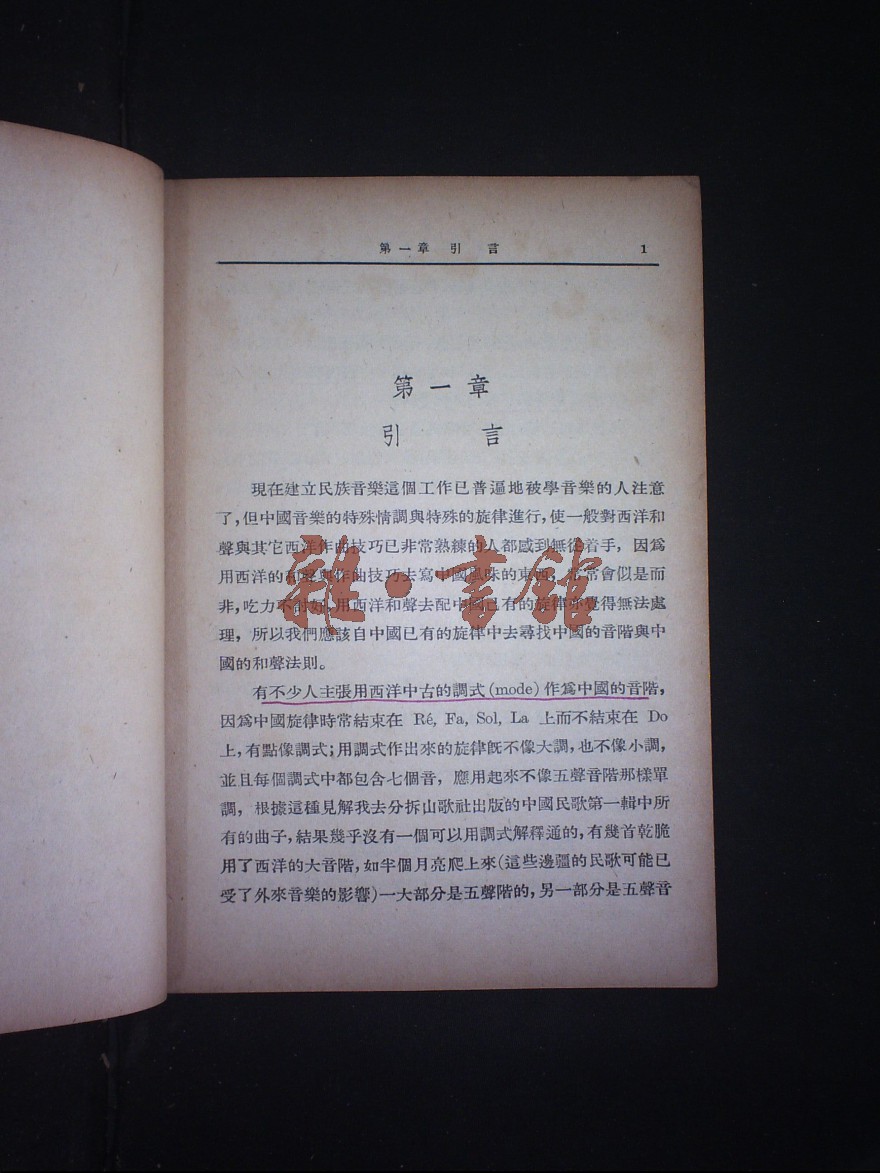 第一章 引 言 1
第一章
引 言
現在建立民族音樂這個工作已普遍地被學音樂的人注意
了，但中國音樂的特殊情調與特殊的旋律進行，使一般對西洋和
聲與其它西洋作曲技巧已非常熟練的人都感到無從着手，因爲
用西洋的和聲與作曲技巧去寫中國風味的東西，常常會似是而
非，吃力不討好，用西洋和聲去配中國已有的旋律亦覺得無法處
理，所以我們應該自中國已有的旋律中去尋找中國的音階與中
國的和聲法則。
有不少人主張用西洋中古的調式(mode)作爲中國的音階，
因爲中國旋律時常結束在 Ré, Fa, Sol, La 上而不結束在 Do
上，有點像調式；用調式作出來的旋律旣不像大調，也不像小調，
並且每個調式中都包含七個音，應用起來不像五聲音階那樣單
調，根據這種見解我去分拆山歌社出版的中國民歌第一輯中所
有的曲子，結果幾乎沒有一個可以用調式解釋通的，有幾首乾脆
用了西洋的大音階，如半個月亮爬上來(這些邊疆的民歌可能已
受了外來音樂的影響)一大部分是五聲階的，另一部分是五聲音
雜·書館